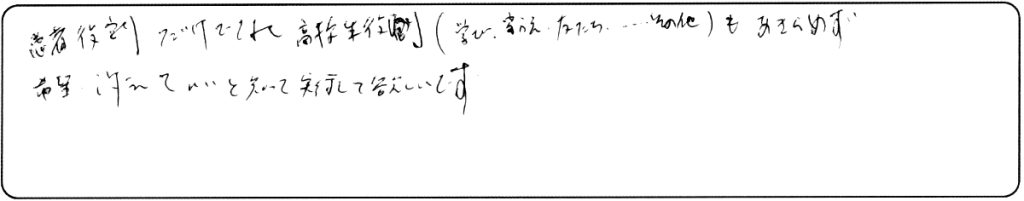 患者役割だけでなく高校生役割(学び、考え、友だち、…その他)もあきらめず
希望 許れていいと知って実行して欲しいです